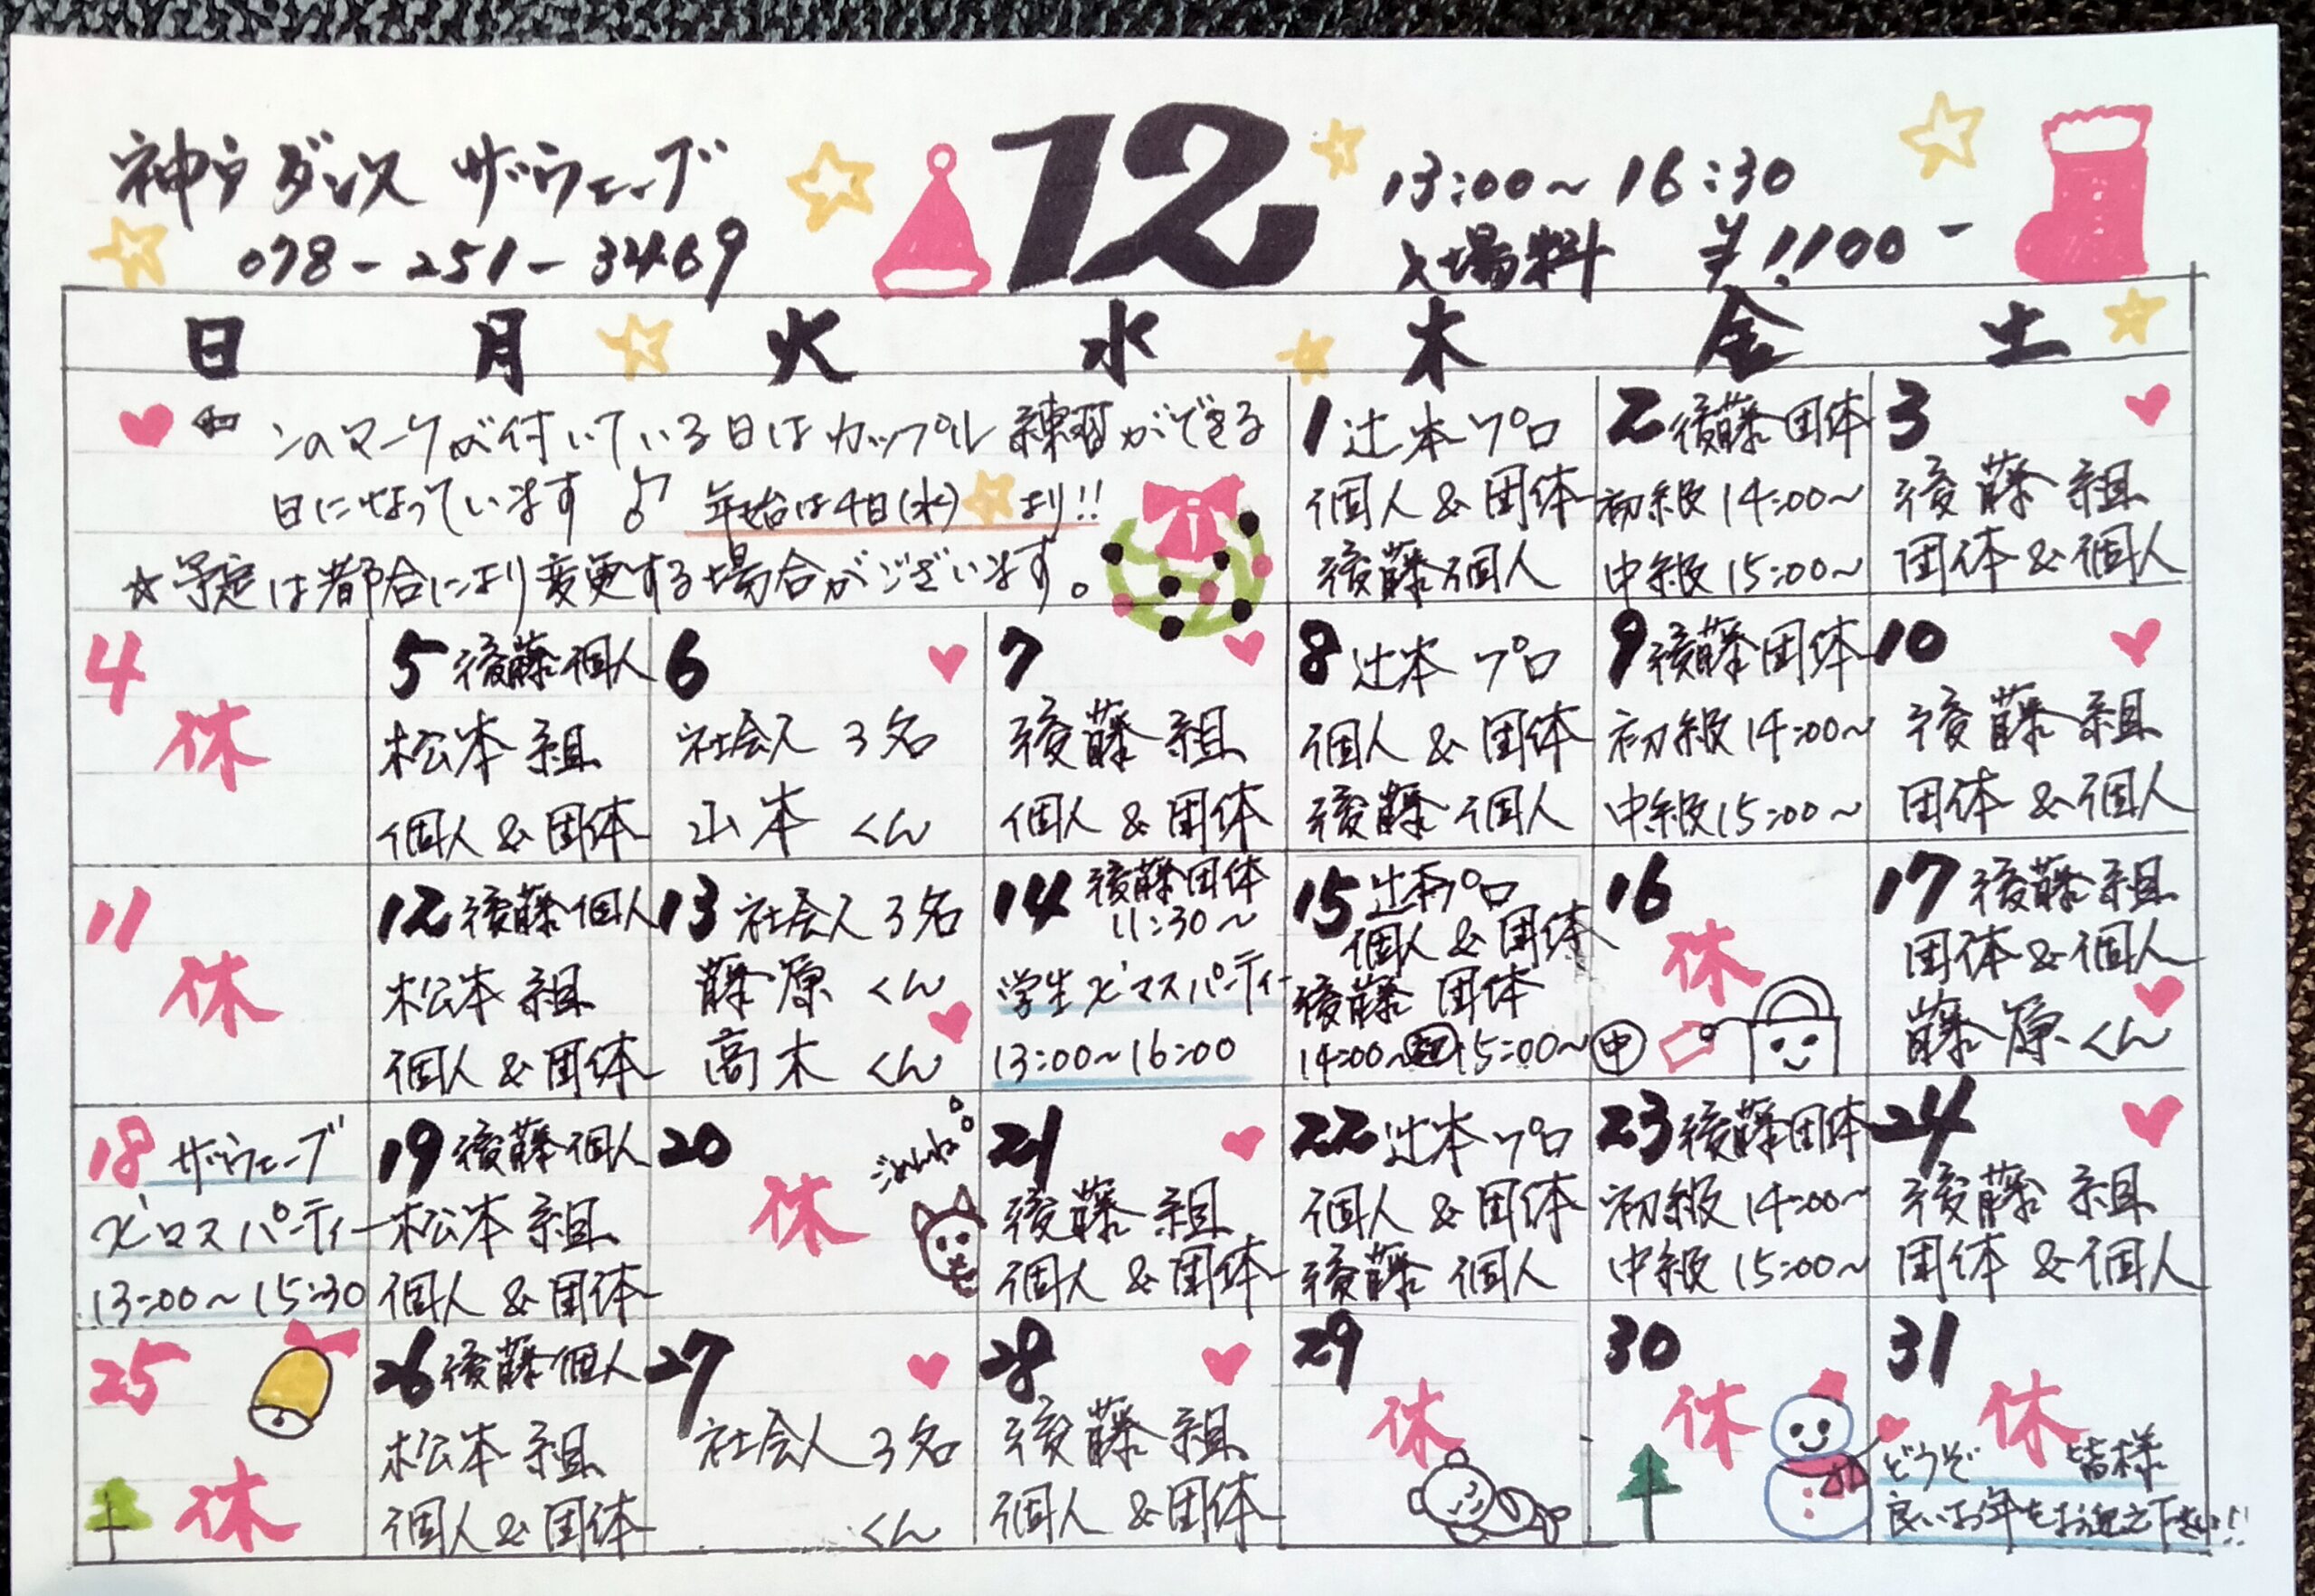 神戸ダンス ザウェーブ
078-251-3469
12
13:00～16:30
入場料 ¥1,100-
日 月 火 水 木 金 土
♥ ⇦ このマークが付いている日はカップル練習ができる
日になっています♪ 年始は4日(水)より!!
☆予定は都合により変更する場合がございます。
1 辻本プロ
個人&団体
後藤個人
2 後藤団体
初級14:00～
中級15:00～
3
後藤組
団体&個人
4
休
5 後藤個人
松本組
個人&団体
6
社会人3名
山本くん
7
後藤組
個人&団体
8 辻本プロ
個人&団体
後藤個人
9 後藤団体
初級14:00～
中級15:00～
10
後藤組
団体&個人
11
休
12 後藤個人
松本組
個人&団体
13 社会人3名
藤原くん
高木くん
14 後藤団体
11:30～
学生X'マスパーティー
13:00～16:00
15 辻本プロ
個人&団体
後藤団体
14:00～初15:00～中
16
休
17 後藤組
団体&個人
藤原くん
18 ザウェーブ
X'マスパーティー
13:00～15:30
19 後藤個人
松本組
個人&団体
20
休
ごめんね
21
後藤組
個人&団体
22 辻本プロ
個人&団体
後藤個人
23 後藤団体
初級14:00～
中級15:00～
24
後藤組
団体&個人
25
休
26 後藤個人
松本組
個人&団体
27
社会人3名
くん
28
後藤組
個人&団体
29
休
30
休
31
休
どうぞ 皆様
良いお年をお迎え下さい!!